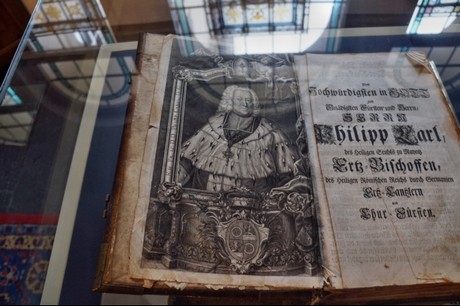 Dem
Hochwürdigsten in GOTT
und
Gnädigsten Fürsten und Herrn,
HERRN
Philipp Carl,
des Heiligen Stuhls zu Mayntz
Ertz-Bischoffen,
des Heiligen Römischen Reichs durch Germanien
Ertz-Cantzlern
und
Chur-Fürsten.